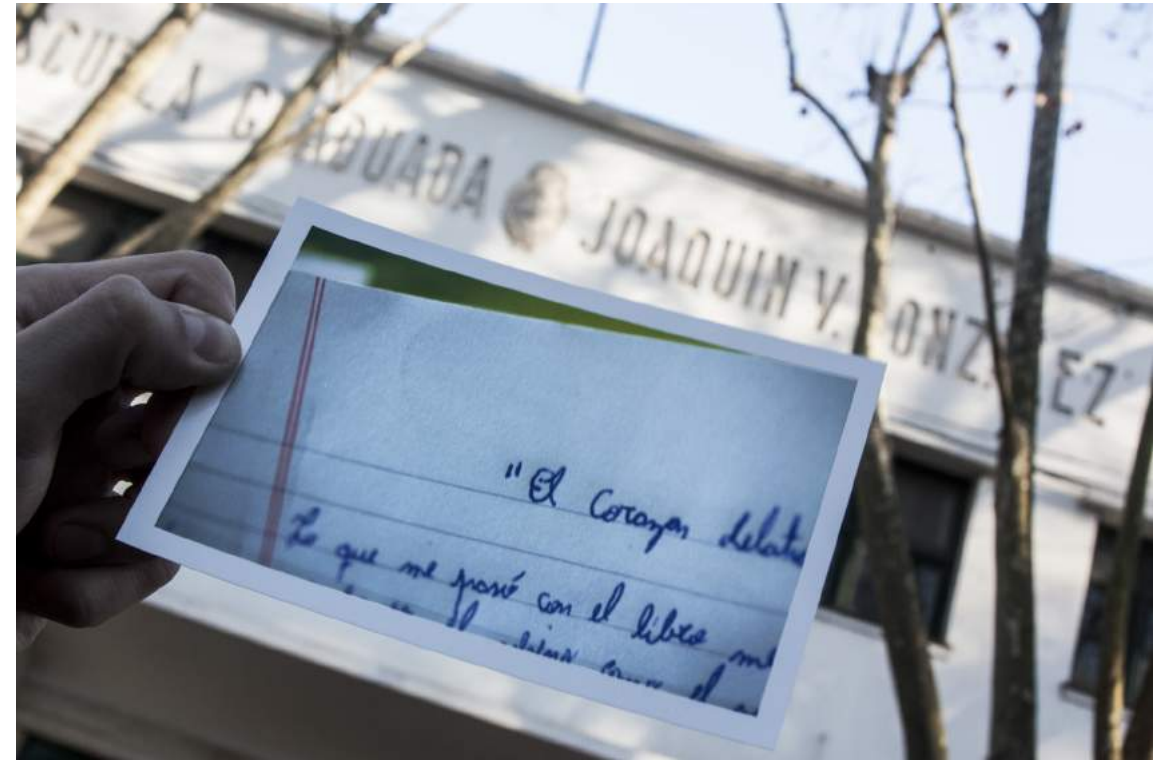 SCUELA GRADUADA JOAQUIN V. GONZALEZ
"El Corazon delato
Lo que me pasó con el libro me
el